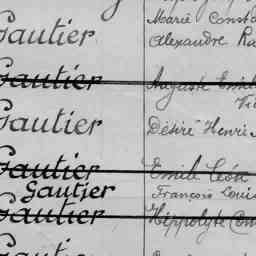 Marie Const
Gautier Alexandre Ra
Gautier Auguste Emile
Gautier Désiré Henri
Gautier Emile Léon
Gautier François Loui
Gautier Hippolyte Con